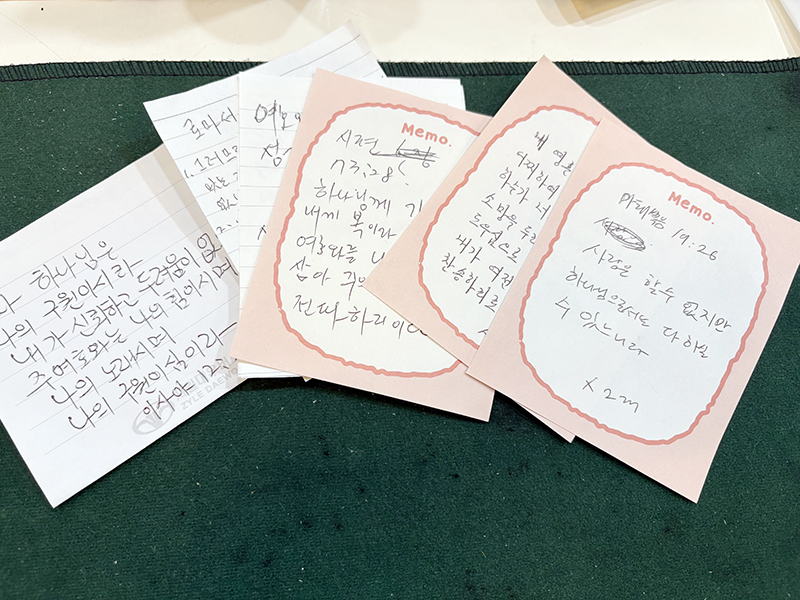 하나님은
나의 구원이시라
내가 신뢰하고 두려움이 없
주 여호와는 나의 힘이시며
나의 노래시며
나의 구원이심이라
이사야 12:2
ZYLE DAEWO
로마서
1. 그러므
없는
여호와
Memo.
시편
73:28
하나님께
내게 복이라
여호와를
삼아
전파하리이
내 영혼
소망을 두
도우심으로
내가 여전
찬송하리로
Memo.
마태복음 19:26
사람은 할 수 없지만
하나님으로서는 다 하실
수 있느니라